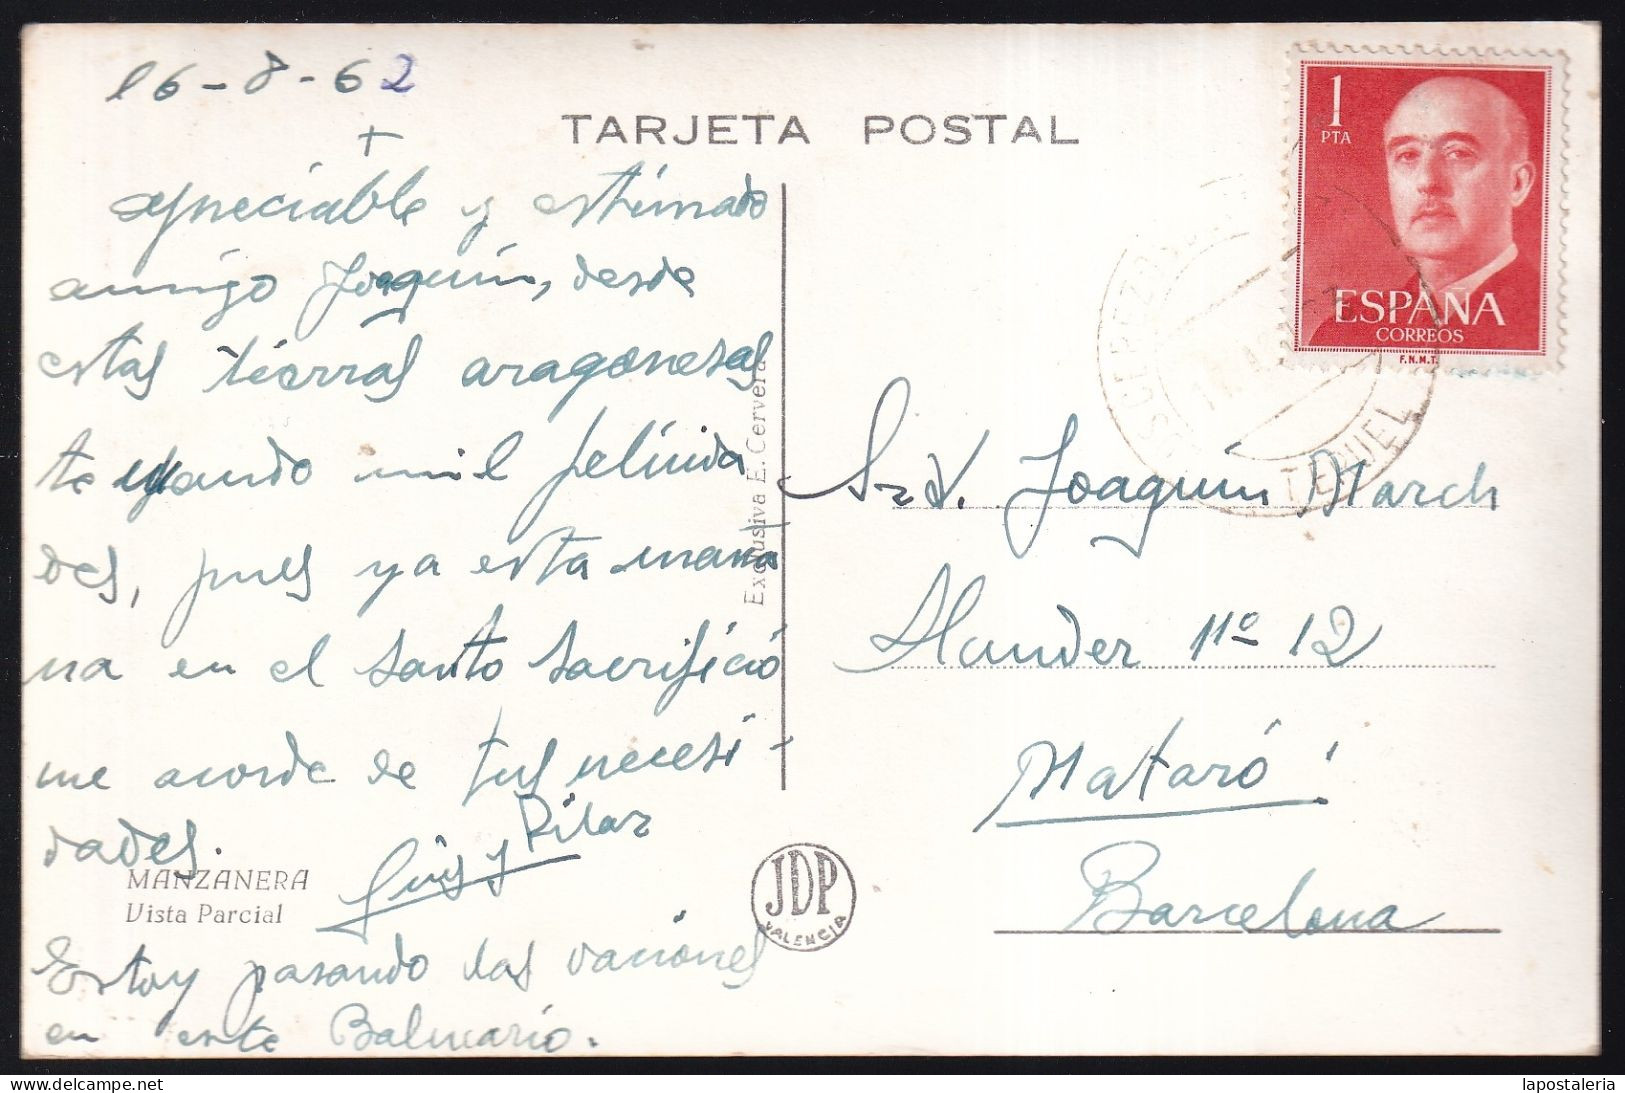 16-8-62
+
TARJETA POSTAL
1
PTA
ESPAÑA
CORREOS
F.N.M.T.
TERUEL
apreciable y estimado
amigo Joaquín, desde
estas tierras aragonesas
te mando mil felicida
des, pues ya esta maña
na en el santo sacrificio
me acorde de tus necesi-
dades.
Luis y Pilar
MANZANERA
Vista Parcial
Estoy pasando las vaciones
en este Balneario.
Exclusiva E. Cervera
JDP
VALENCIA
Sr. D. Joaquín March
Llauder nº 12
Mataró
Barcelona
lapostaleria